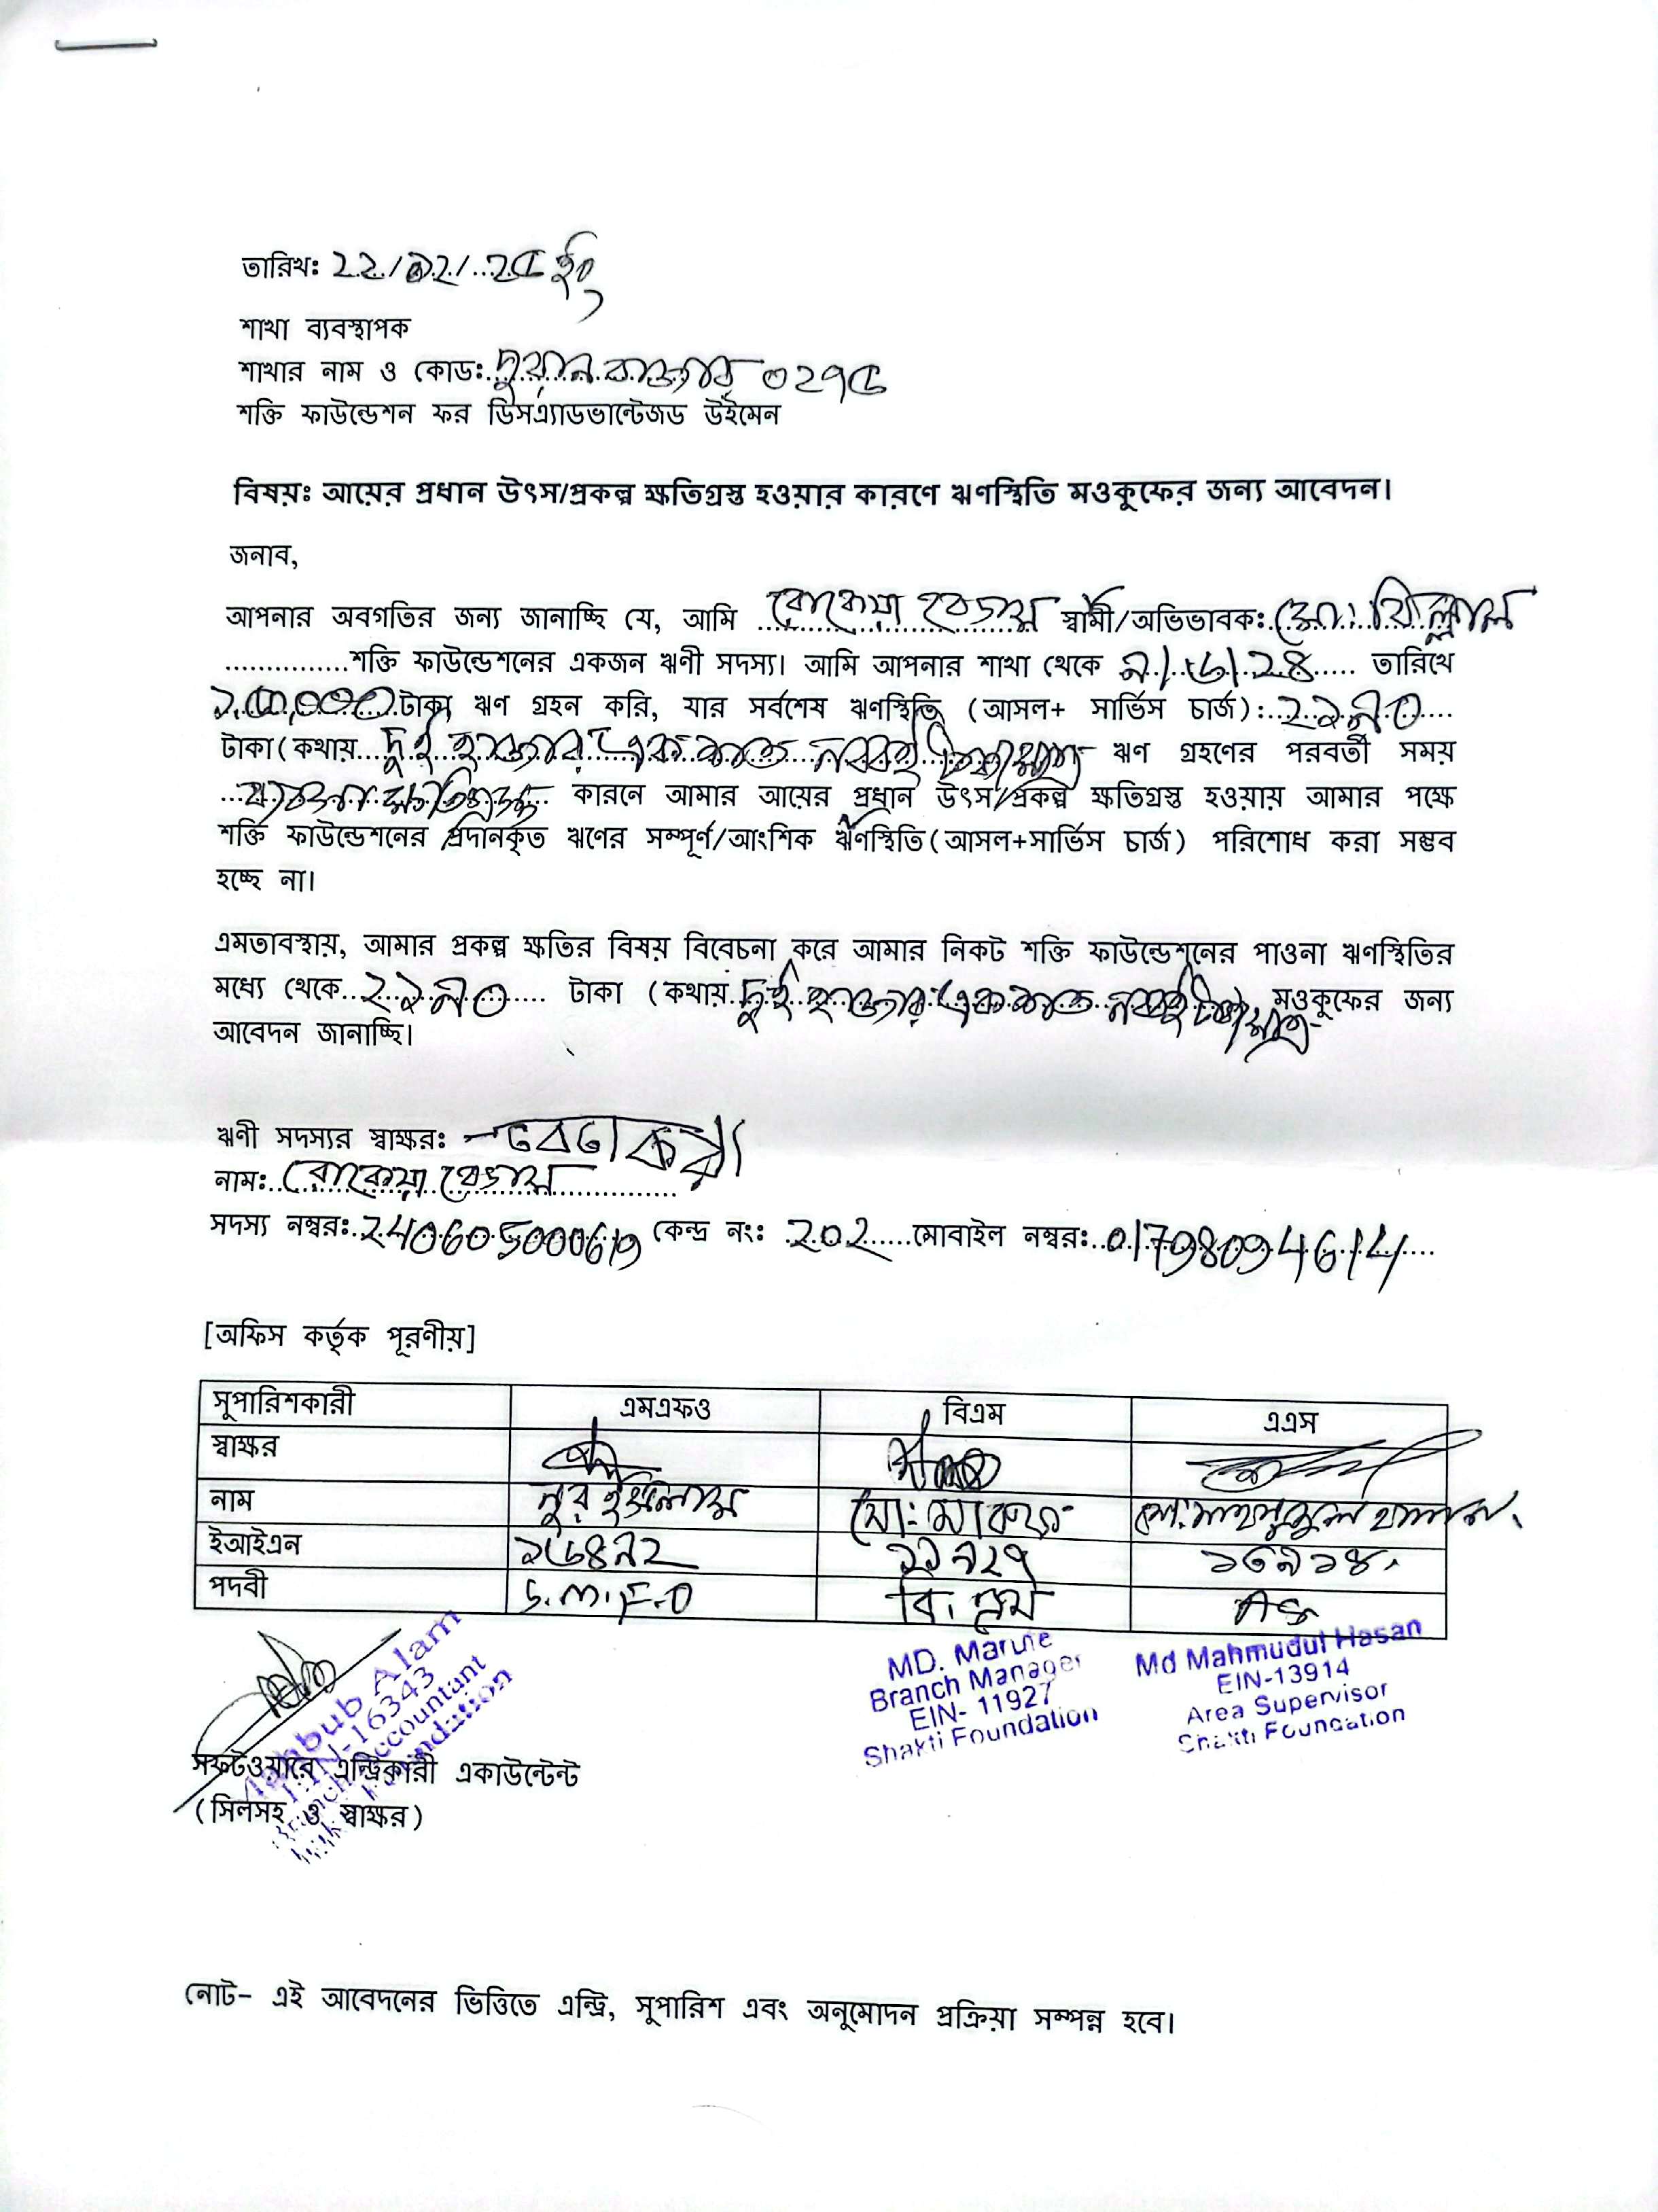 তারিখঃ ২২/১২/২৫ ইং
শাখা ব্যবস্থাপক
শাখার নাম ও কোডঃ ০২৭৫
শক্তি ফাউন্ডেশন ফর ডিসএ্যাডভান্টেজড উইমেন
বিষয়ঃ আয়ের প্রধান উৎস/প্রকল্প ক্ষতিগ্রস্ত হওয়ার কারণে ঋণস্থিতি মওকুফের জন্য আবেদন।
জনাব,
আপনার অবগতির জন্য জানাচ্ছি যে, আমি রোকেয়া বেগম স্বামী/অভিভাবকঃ মোঃ বিল্লাল
শক্তি ফাউন্ডেশনের একজন ঋণী সদস্য। আমি আপনার শাখা থেকে ৯/৬/২৪ তারিখে
টাকা ঋণ গ্রহন করি, যার সর্বশেষ ঋণস্থিতি (আসল+ সার্ভিস চার্জ):২১৯০
টাকা(কথায় দুই হাজার একশত নব্বই টাকা মাত্র ঋণ গ্রহণের পরবর্তী সময়
ব্যবসা ক্ষতিগ্রস্ত কারনে আমার আয়ের প্রধান উৎস/প্রকল্প ক্ষতিগ্রস্ত হওয়ায় আমার পক্ষে
শক্তি ফাউন্ডেশনের প্রদানকৃত ঋণের সম্পূর্ণ/আংশিক ঋণস্থিতি(আসল+সার্ভিস চার্জ) পরিশোধ করা সম্ভব
হচ্ছে না।
এমতাবস্থায়, আমার প্রকল্প ক্ষতির বিষয় বিবেচনা করে আমার নিকট শক্তি ফাউন্ডেশনের পাওনা ঋণস্থিতির
মধ্যে থেকে ২১৯০ টাকা (কথায় দুই হাজার একশত নব্বই টাকা মাত্র মওকুফের জন্য
আবেদন জানাচ্ছি।
ঋণী সদস্যর স্বাক্ষরঃ
নামঃ রোকেয়া বেগম
সদস্য নম্বরঃ কেন্দ্র নংঃ 202 মোবাইল নম্বরঃ 01798094614
[অফিস কর্তৃক পূরণীয়]
সুপারিশকারী এমএফও বিএম এএস
স্বাক্ষর
নাম নুর ইসলাম মোঃ মারুফ মোঃ মাহমুদুল হাসান
ইআইএন ১৬৪৯২ ১১৯২৭ ১৩৯১৪
পদবী S.M.F.O বি.এম AS
MD. Marufe
Branch Manager
EIN- 11927
Shakti Foundation
Md Mahmudul Hasan
EIN-13914
Area Supervisor
Shakti Foundation
Mahbub Alam
EIN-16343
Branch Accountant
Shakti Foundation
সফটওয়ারে এন্ট্রিকারী একাউন্টেন্ট
(সিলসহ ও স্বাক্ষর)
নোট- এই আবেদনের ভিত্তিতে এন্ট্রি, সুপারিশ এবং অনুমোদন প্রক্রিয়া সম্পন্ন হবে।